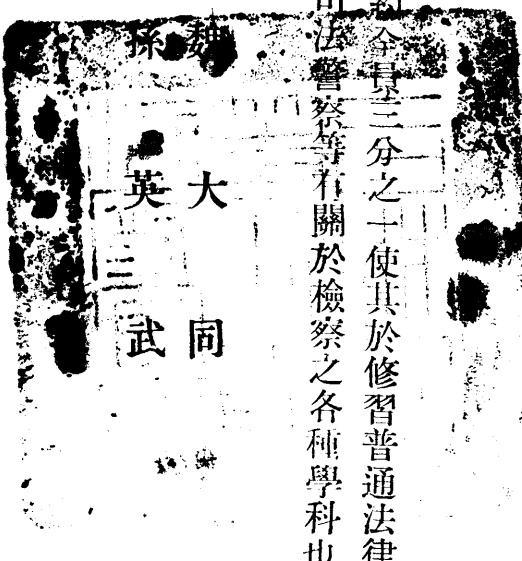 約全員三分之一使其於修習普通法律
司法警察等有關於檢察之各種學科也
魏大同
孫英武